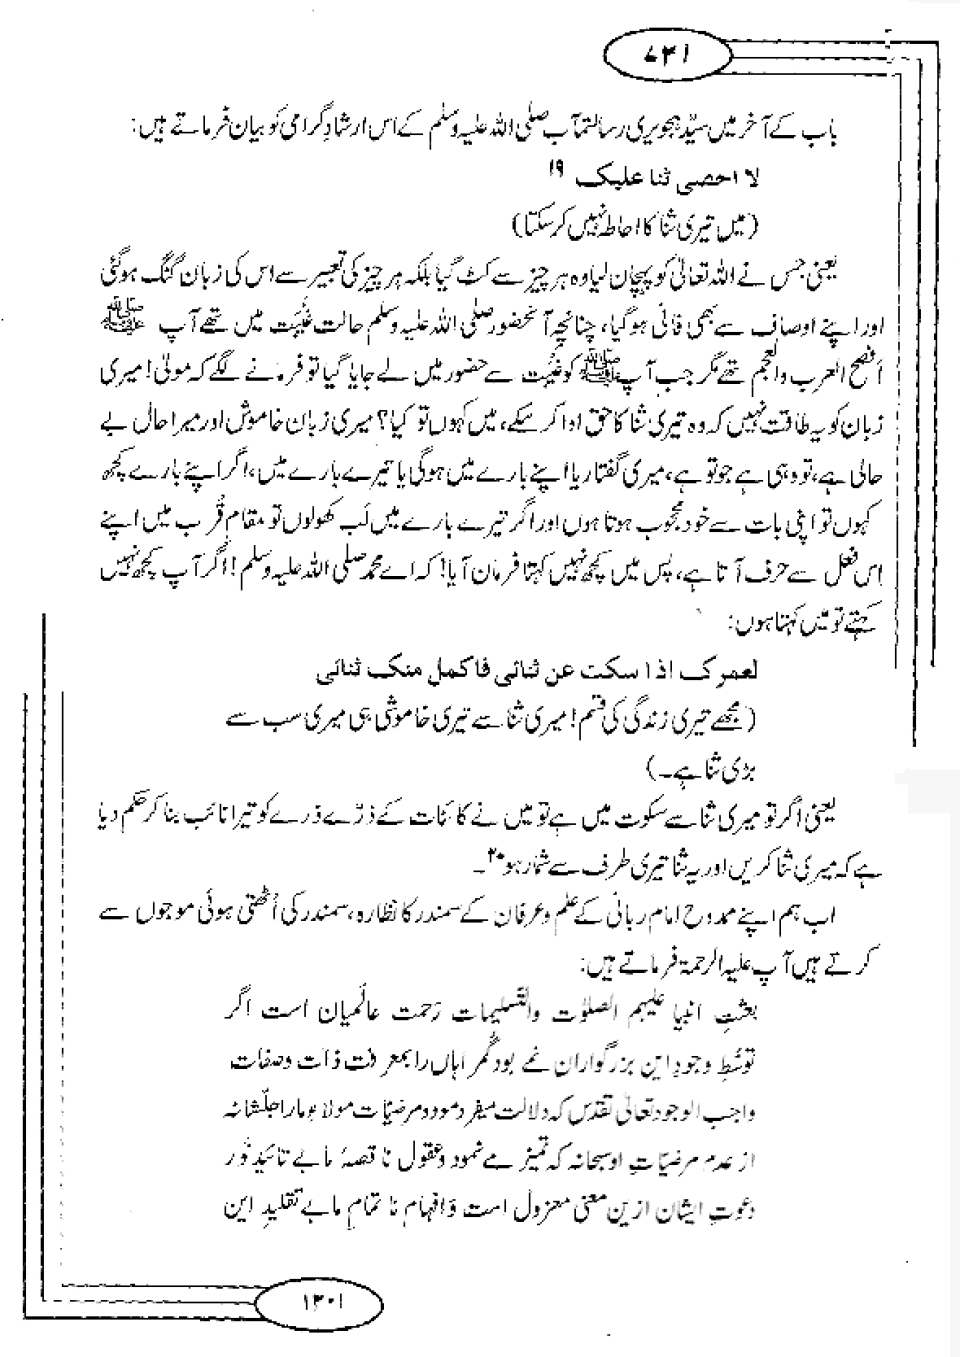 ۷۳۱
باب کے آخر میں سیّد ہجویری رسالتمآب صلی اللہ علیہ وسلم کے اس ارشادِ گرامی کو بیان فرماتے ہیں:
لا احصی ثنا علیک ۱۹
(میں تیری ثنا کا احاطہ نہیں کر سکتا)
یعنی جس نے اللہ تعالیٰ کو پہچان لیا وہ ہر چیز سے کٹ گیا بلکہ ہر چیز کی تعبیر سے اس کی زبان گنگ ہو گئی
اور اپنے اوصاف سے بھی فانی ہو گیا، چنانچہ آنحضور صلی اللہ علیہ وسلم حالت غَیبت میں تھے آپ ﷺ
اَفصح العرب والعجم تھے مگر جب آپ ﷺ کو غَیبت سے حضور میں لے جایا گیا تو فرمانے لگے کہ مولیٰ! میری
زبان کو یہ طاقت نہیں کہ وہ تیری ثنا کا حق ادا کر سکے، میں کہوں تو کیا؟ میری زبان خاموش اور میرا حال بے
حالی ہے، تو وہی ہے جو تو ہے، میری گفتار یا اپنے بارے میں ہوگی یا تیرے بارے میں، اگر اپنے بارے کچھ
کہوں تو اپنی بات سے خود محجوب ہوتا ہوں اور اگر تیرے بارے میں لَب کھولوں تو مقام قُرب میں اپنے
اِس فعل سے حرف آتا ہے، پس میں کچھ نہیں کہتا فرمان آیا! کہ اے محمد صلی اللہ علیہ وسلم! اگر آپ کچھ نہیں
کہتے تو میں کہتا ہوں:
لعمرک اذا سکت عن ثنائی فاکمل منک ثنائی
(مجھے تیری زندگی کی قسم! میری ثنا سے تیری خاموشی ہی میری سب سے
بڑی ثنا ہے۔)
یعنی اگر تو میری ثنا سے سکوت میں ہے تو میں نے کائنات کے ذرّے ذرے کو تیرا نائب بنا کر حکم دیا
ہے کہ میری ثنا کریں اور یہ ثنا تیری طرف سے شمار ہو ۲۰۔
اب ہم اپنے ممدوح امام ربانی کے علم و عرفان کے سمندر کا نظارہ، سمندر کی اُٹھتی ہوئی موجوں سے
کرتے ہیں آپ علیہ الرحمۃ فرماتے ہیں:
بعثتِ انبیا علیہم الصلوٰت والتسلیمات رَحمت عالَمیان است اگر
توسّطِ وجودِ این بزرگواران نمے بود گمراہاں را بمعرفت ذات و صفات
واجب الوجود تعالیٰ تقدّس کہ دلالت میفرمود و مرضیّات مولا ءِ ما را جلّشانہ
از عدم مرضیّاتِ او سبحانہ کہ تمیز مے نمود و عقول ناقصۂ ما بے تائیدِ نُور
دعوتِ ایشان ازین معنی معزول است و اَفہام نا تمامِ ما بے تقلیدِ این
۱۳۰۱